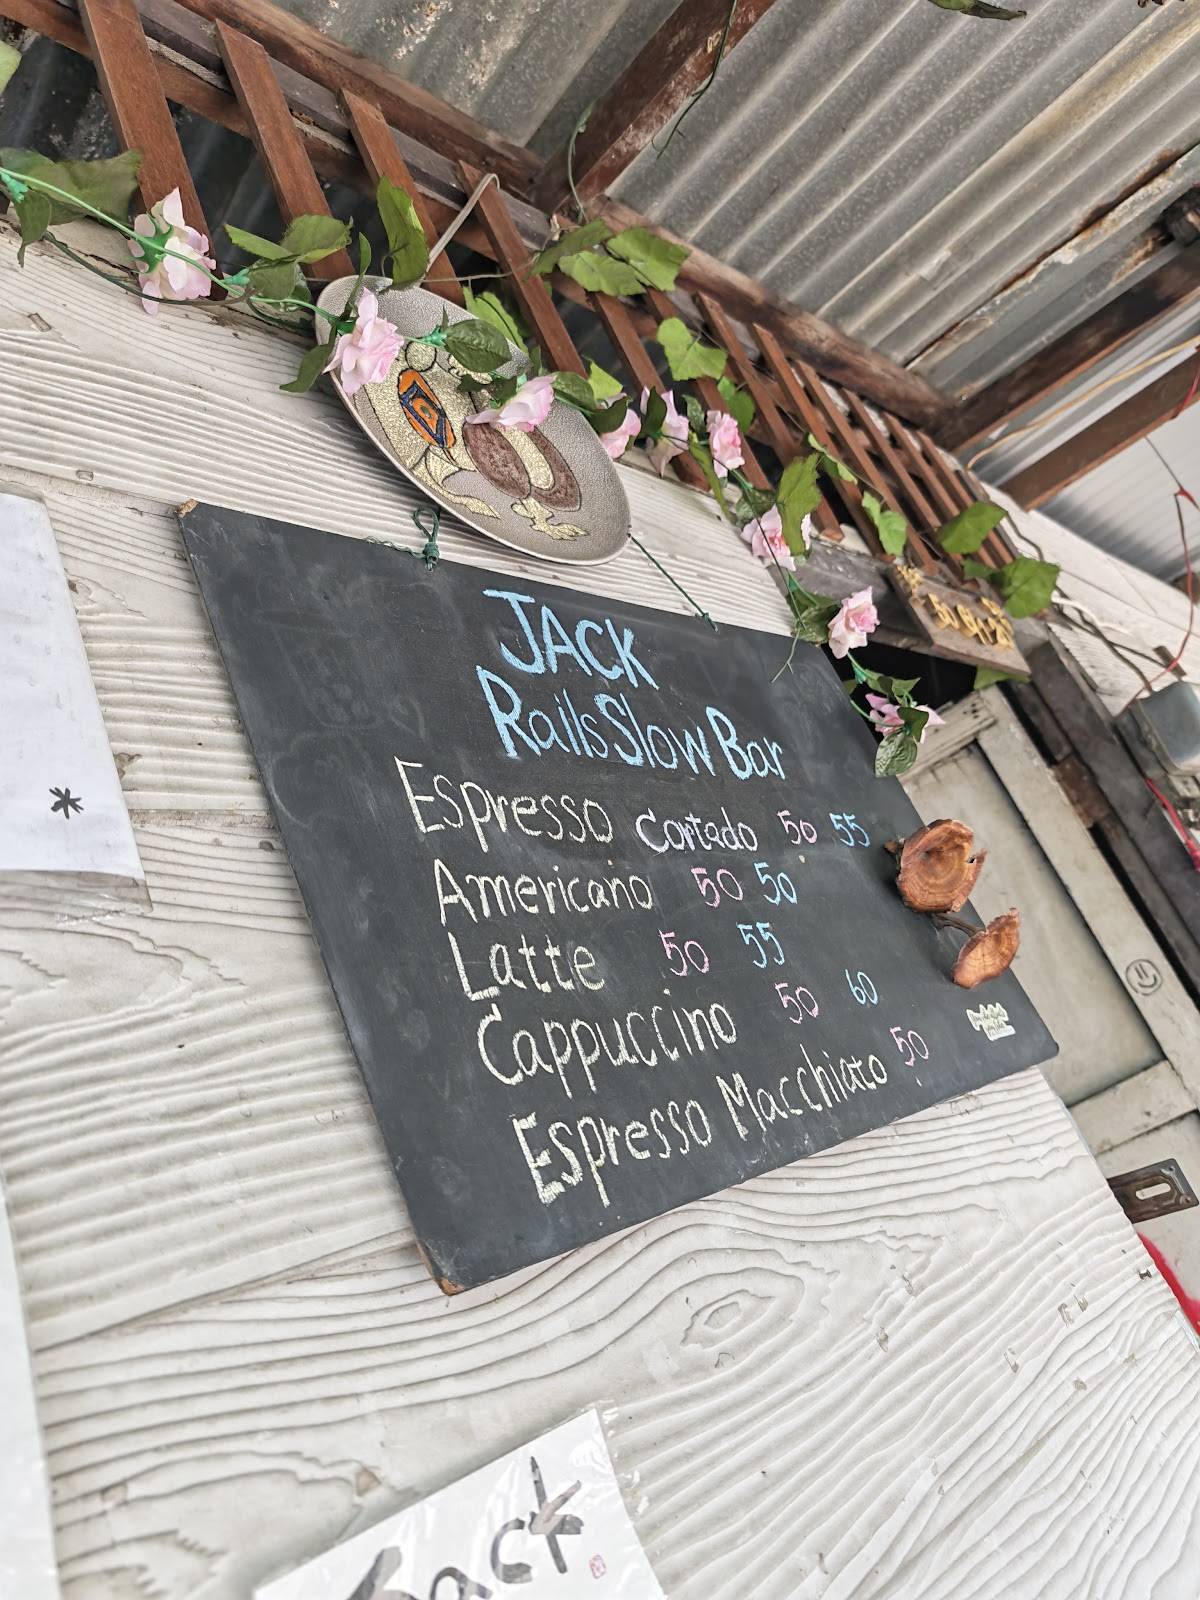 JACK
Rails Slow Bar
Espresso Cortado 50 55
Americano 50 50
Latte 50 55
Cappuccino 50 60
Espresso Macchiato 50
*
Jack